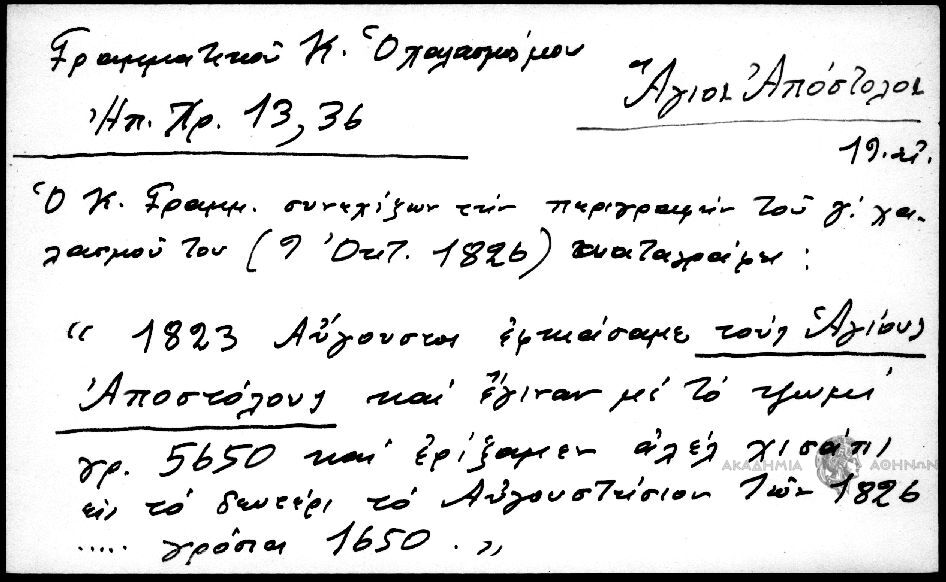 Γραμματικοῦ Κ. Ὁ χαλασμός μου
Ἠπ. Χρ. 13, 36
Ἅγιοι Ἀπόστολοι
19. αἰ.
Ὁ Κ. Γραμμ. συνεχίζων τὴν περιγραφὴν τοῦ γ΄. χα-
λασμοῦ του (9 Ὀκτ. 1826) καταγράφει :
" 1823 Αὔγουστοι ἐφκιάσαμε τοὺς Ἁγίους
Ἀποστόλους καὶ ἔγιναν μὲ τὸ ψωμὶ
γρ. 5650 καὶ ἐρίξαμεν ἀλὲλ χισάπι
εἰς τὸ δευτέρι τὸ Αὐγουστιάτικον 1826
..... γρόσια 1650 . "
ΑΚΑΔΗΜΙΑ ΑΘΗΝΩΝ